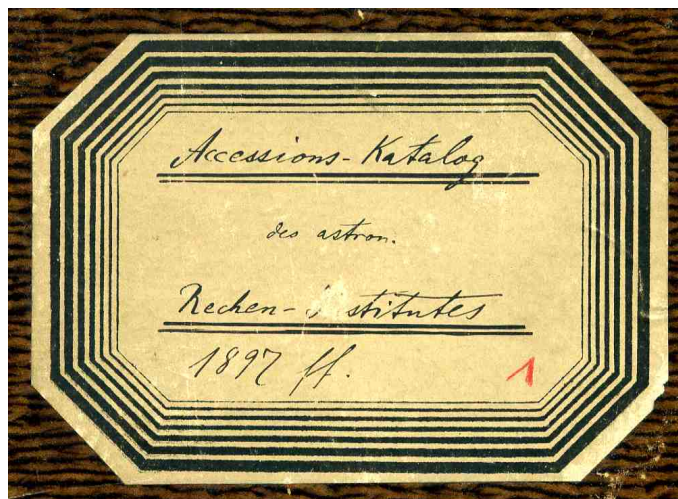 Accessions-Katalog
des astron.
Rechen-Institutes
1897 ff.
1